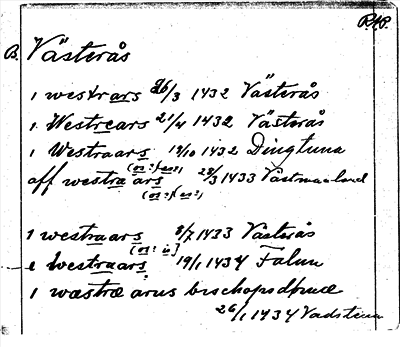 RAP.
B. Västerås
1 westrars 26/3 1432 Västerås
1 Westrears 21/4 1432 Västerås
1 Westraars 19/10 1432 Dingtuna
aff westra ars 28/3 1433 Västmanland
1 westraars 8/7 1433 Västerås
e Westraars 19/1 1434 Falun
1 wæstræ arus biscopsdøme
26/1 1434 Vadstena